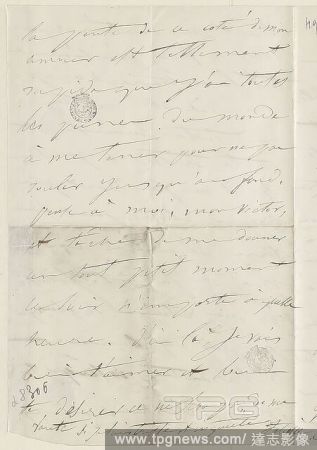 la pente de ce côté de mon
amour est tellement
rapide que j'ai toutes
les peines du monde
à me tenir pour ne pas
rouler jusqu'au fond.
Pense à moi, mon Victor,
et tâche de me donner
un tout petit moment
ce soir n'importe à quelle
heure. D'ici là je vais
bien t'aimer et bien
te désirer
28306
TPG
www.tpgnews.com / 達志影像